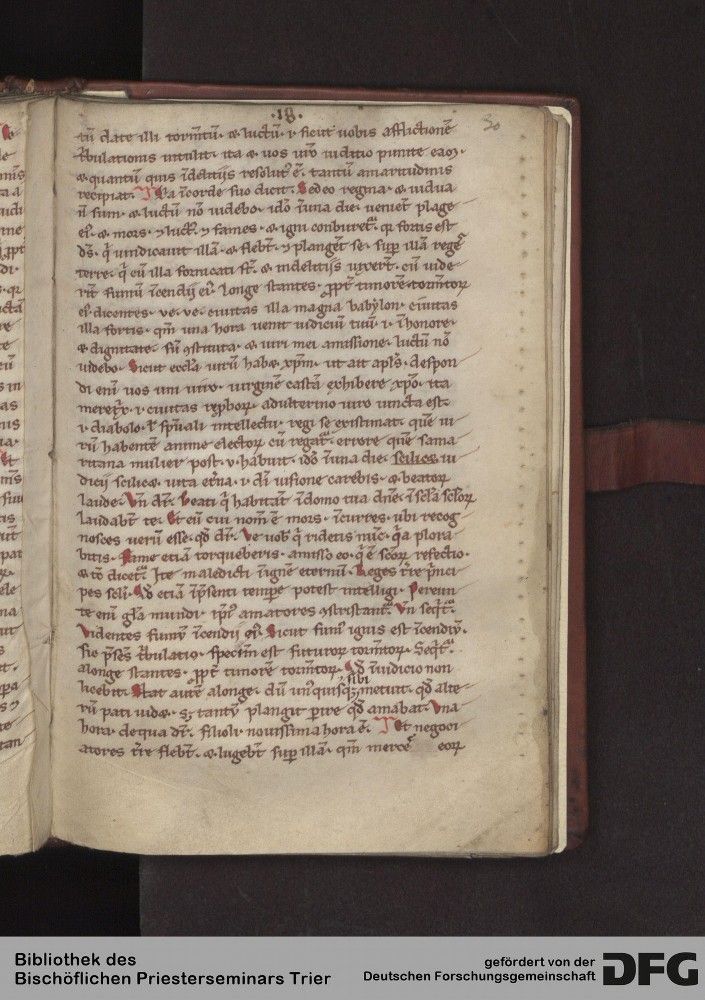 ·18·
30
tū date illi tormtū· & luctū· ι sicut uobis afflictionē
tͥbulationis intulit· ita & uos uiro iudicio punite eam·
& quantū quis īdelitijs resolutꝰ ē· tantū amaritudinis
recipiat· Quia īcorde suo dicit· Sedeo regina· & uidua
ñ sum· & luctū nō uidebo· idō īuna die· uenient plage
eiꝰ· & mors· ⁊ luctꝰ· ⁊ fames· & igni conburet᷑· qꝛ fortis est
ds̄· q̄ uindicauit illā· & flebt̄· ⁊ plangent se· sup illā regē
terre· q̄ cū illa fornicati st̄· & indelitijs uixert̄· cū uide
rīt fumū īcendij eiꝰ· longe stantes· ꝓpt̄ timorē tormtoꝝ
eiꝰ dicentes· ve· ve· ciuitas illa magna babylon· ciuitas
illa fortis· qm̄ una hora uenit iudiciū tuū· ι· īhonore·
& dignitate· sū ꝯstituta· & uiri mei amissione· luctū nō
uidebo· Sicut eccla uirū habet xpm̄· ut ait apls̄· despon
di enī uos uni uiro· uirginē castā exhibere xpo· ita
meretx̄· ι· ciuitas reꝓboꝝ· adulterino uiro iuncta est·
ι· diabolo· ł spūali intellectu· regi se existimat· quē ui
rū habentē anime electoꝝ cū regat᷑· errore quē sama
ritana mulier post· v· habuit· idō īuna die· scilicet iu
dicij scilicet· uita et̄na· ι· di uisione carebis· & beatoꝝ
laude· Vn̄ dr̄· Beati q̄ habitāt īdomo tua dn̄e· ī scl̄a scl̄oꝝ
laudabt̄ te· Et cū cui nom̄ ē mors· īcurres· ubi recog
nosces uerū esse· qd̄ dr̄· Ve uob̄ q̄ ridetis nūc· q̄a plora
bitis· Fame etiā torqueberis· amisso eo· q̄ ē scōꝝ refectio·
& tō dicet᷑· Ite maledicti īignē eternū· Reges t̄re p̄nci
pes scl̄i· Qd̄ etiā īpsenti tempe potest intelligi· Pereun
te enī gl̄a mundi· ipī amatores ꝯtristant᷑· Vn̄ seqt᷑·
Videntes fumū īcendij eiꝰ· Sicut fumꝰ ignis est īcendiū·
sic p̄sēs tͥbulatio· spectm̄ est futuroꝝ tormtoꝝ· Seqt᷑·
Alonge stantes· ꝓpt̄ timorē tormtoꝝ· Qd̄ īiudicio non
licebit· Stat autē alonge· dū unꝰquisqꝫ sibi metuit· qd̄ alte
rū pati uidet· sꝫ tantū plangit perire qd̄ amabat· Vna
hora· dequa dr̄· filioli nouissima hora ē· Et negoci
atores t̄re flebt̄· & lugebt̄ sup illā· qm̄ mercē eoꝝ
Bibliothek des
Bischöflichen Priesterseminars Trier
gefördert von der
Deutschen Forschungsgemeinschaft
DFG